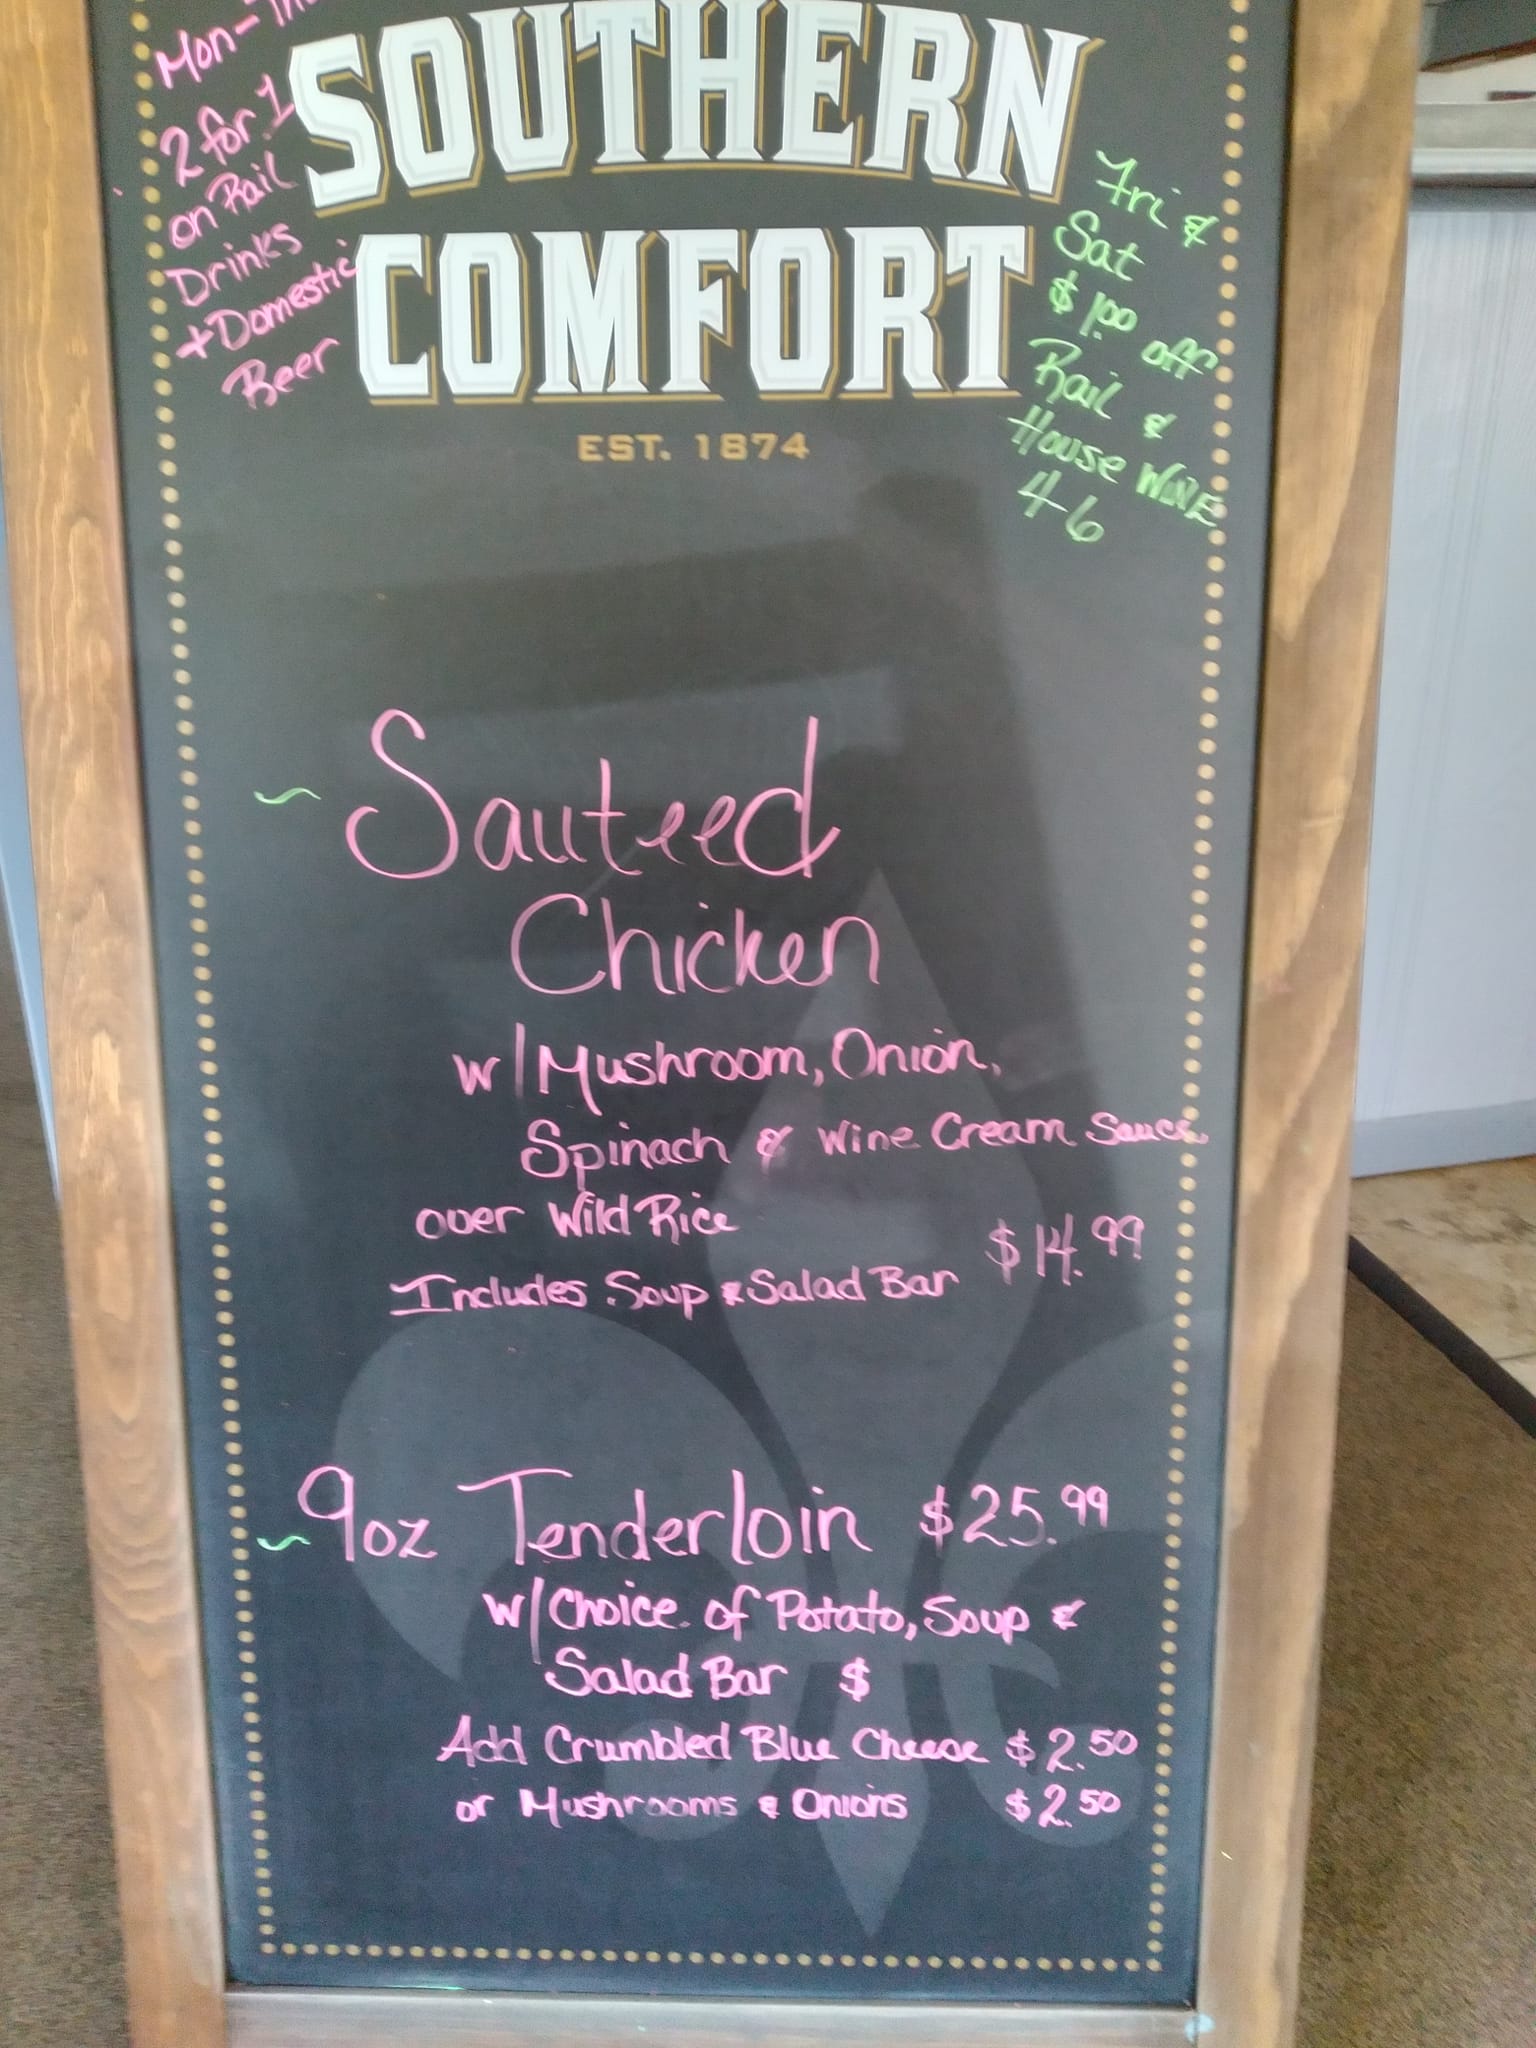 Mon-Thu
2 for 1
on Rail
Drinks
+Domestic
Beer
SOUTHERN
COMFORT
EST. 1874
Fri &
Sat
$1.00 off
Rail &
House WINE
4-6
~ Sauteed
Chicken
w/Mushroom, Onion,
Spinach & Wine Cream Sauce
over Wild Rice
$14.99
Includes Soup & Salad Bar
~ 9oz Tenderloin $25.99
w/Choice of Potato, Soup &
Salad Bar $
Add Crumbled Blue Cheese $2.50
or Mushrooms & Onions $2.50